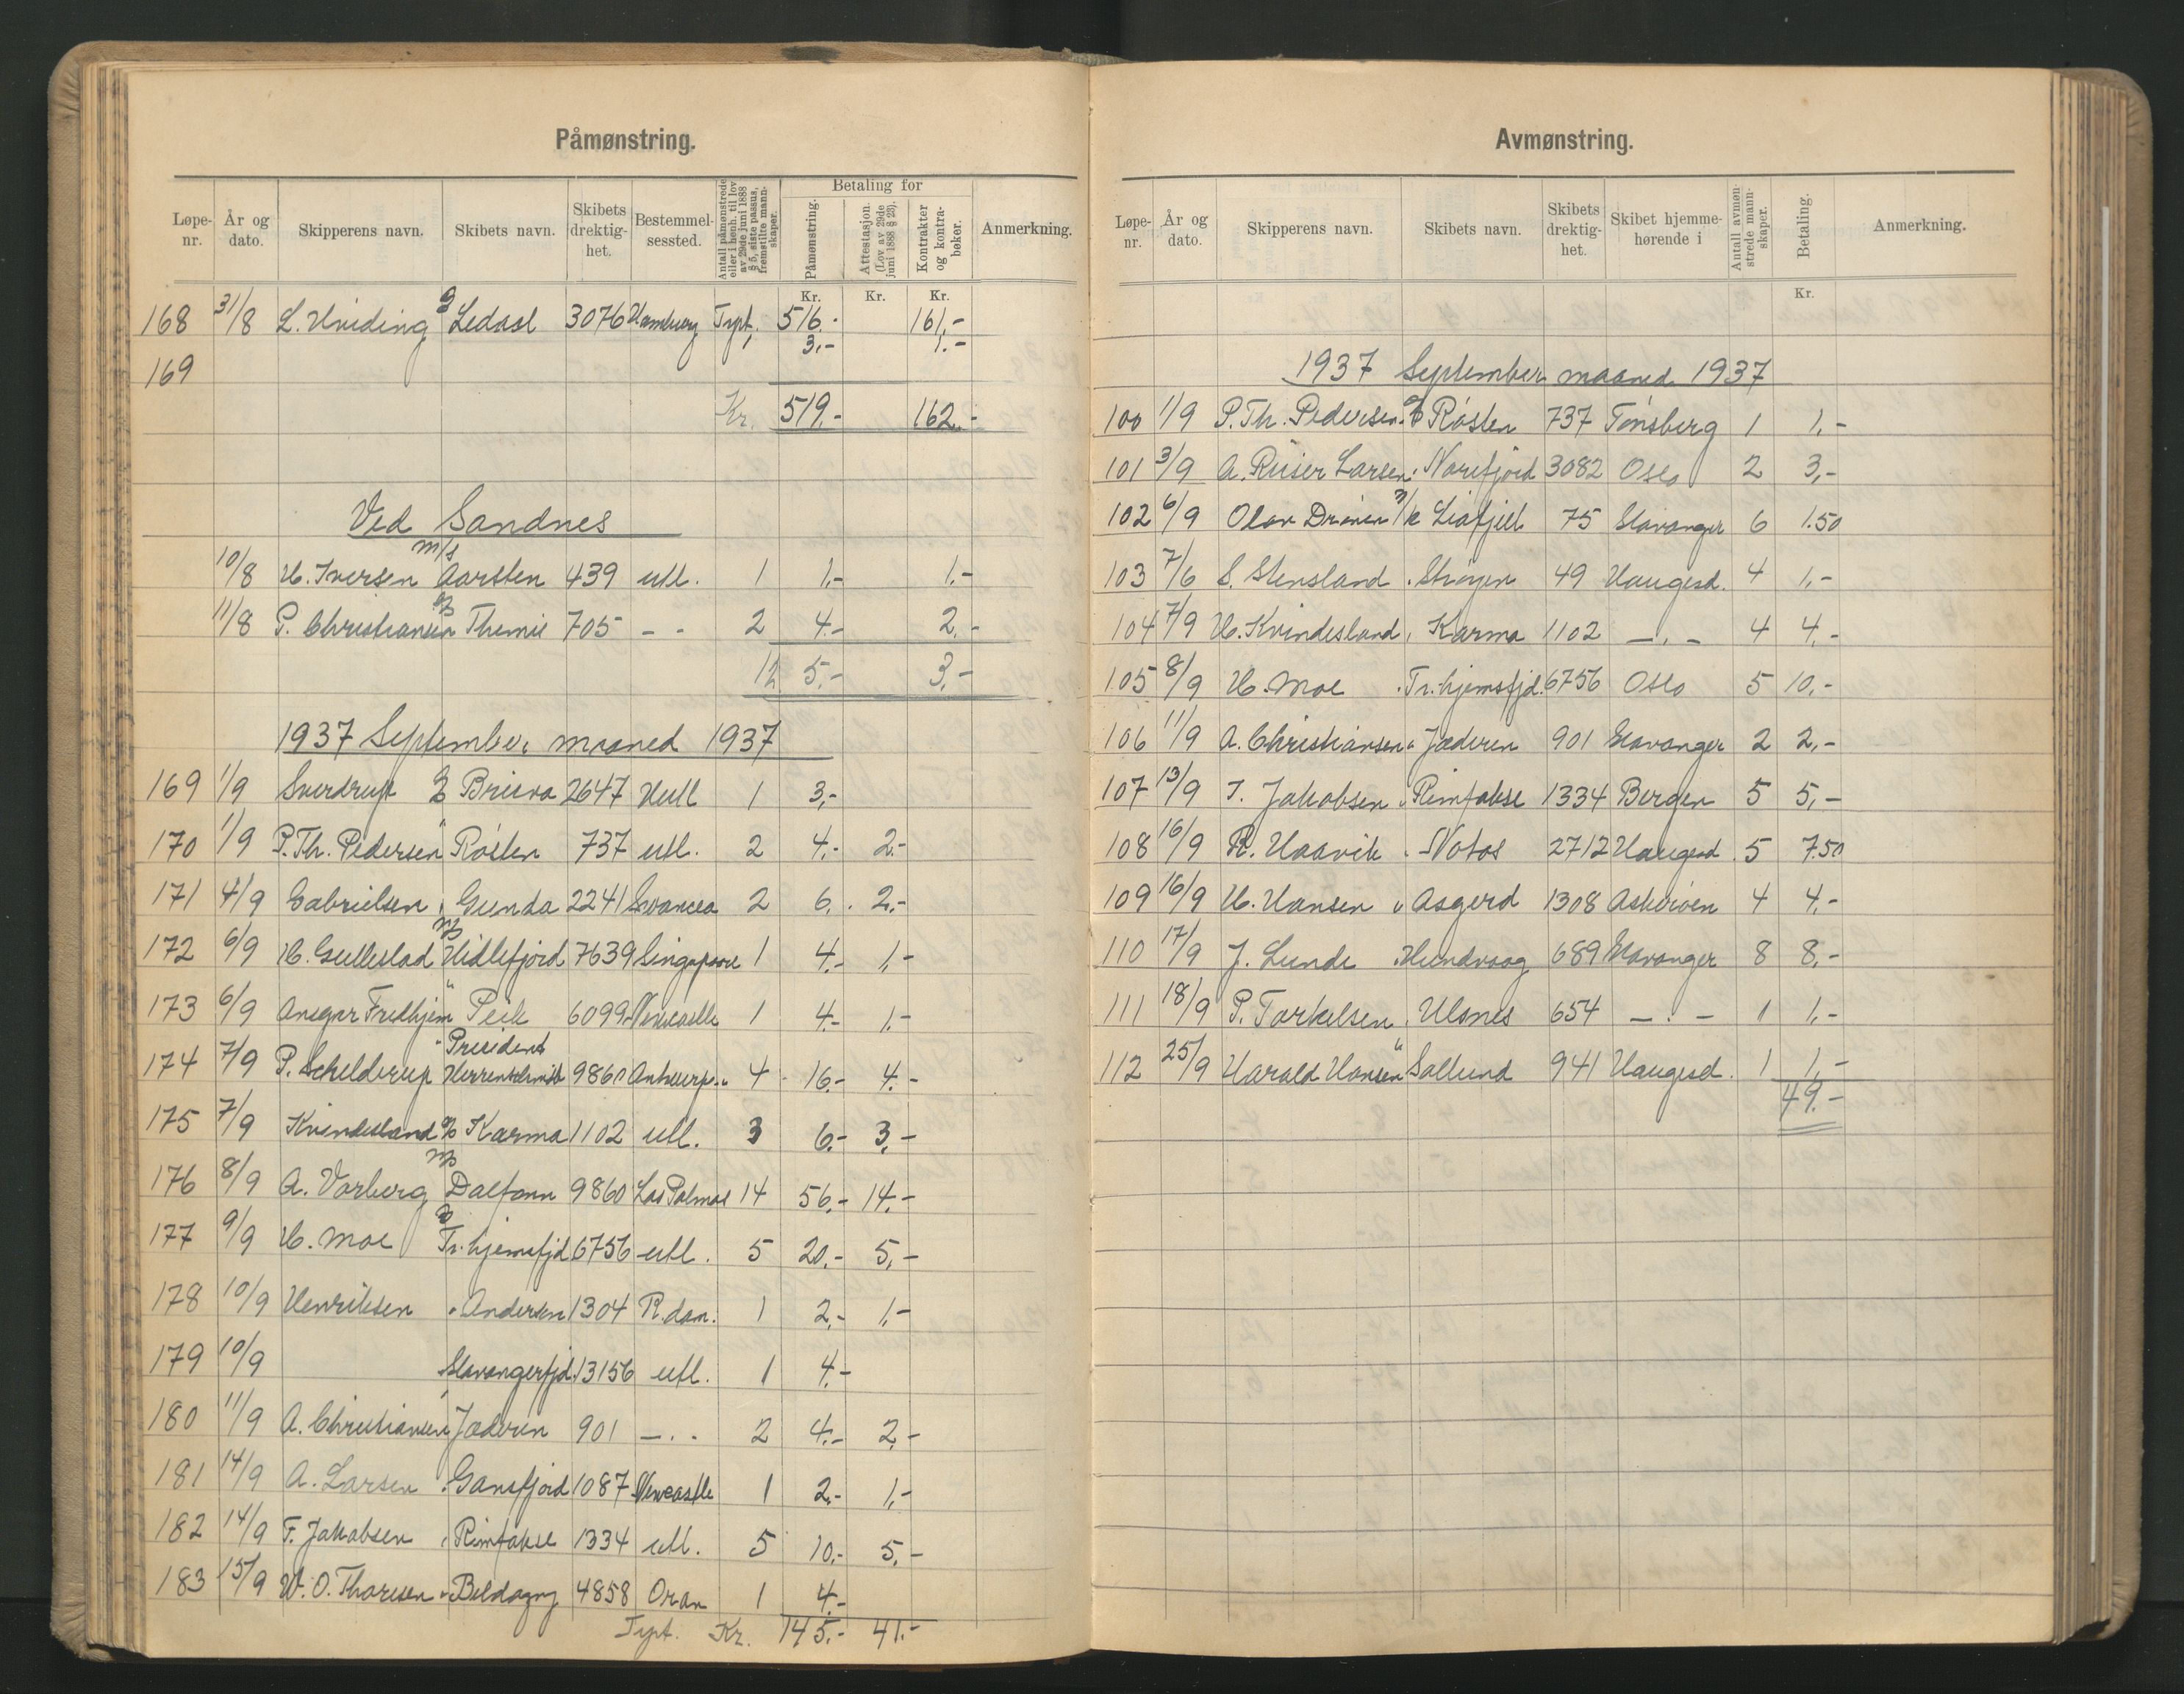 Påmønstring.
Løpe-nr. År og dato. Skipperens navn. Skibets navn. Skibets drektig-het. Bestemmel-sessted. Antall påmønstrede eller i henh. til lov av 29de juni 1888 § 5, siste passus, fremstilte mann-skaper. Betaling for Påmønstring. Attestasjon. (Lov av 29de juni 1888 § 23). Kontrakter og kontra-bøker. Anmerkning.
Kr. Kr. Kr.
168 31/8 L. Hviding Ledaal 3076 Hamburg Trpt. 516.- 161,-
3,- 1.-
169
Kr. 519.- 162.-
Ved Sandnes
10/8 H. Iversen m/s Aarsten 439 utl. 1 1,- 1,-
11/8 P. Christiansen Themis 705 - - 2 4.- 2.-
5.- 3,-
1937 September maaned 1937
169 1/9 Sverdrup Brisva 2647 Hull 1 3,-
170 1/9 P. Th. Pedersen " Røsten 737 utl. 2 4,- 2.-
171 4/9 Gabrielsen Gunda 2241 Svancea 2 6. . 2.-
172 6/9 H. Gullestad m/s Hidlefjord 7639 Singapoore 1 4.- 1,-
173 6/9 Ansgar Fredhjem " Peik 6099 Newcastle 1 4.- 1.-
174 7/9 P. Schelderup " President Herrenschmidt 9860 Antwerp.. 4 16.- 4.-
175 7/9 Kvindesland Karma 1102 utl. 3 6.- 3.-
176 8/9 A. Varberg m/s Dalfonn 9860 Las Palmas 14 56.- 14.-
177 9/9 H. Moe Tr.hjemsfjd 6756 utl. 5 20.- 5,-
178 10/9 Henriksen " Andersen 1304 R.dam. 1 2,- 1,-
179 10/9 Stavangerfjd. 13156 utl. 1 4.-
180 11/9 A. Christiansen Jæderen 901 - . - 2 4.- 2.-
181 14/9 A. Larsen . Gansfjord 1087 Newcastle 1 2,- 1,-
182 14/9 T. Jakobsen Rimfakse 1334 utl. 5 10.- 5,-
183 15/9 W. O. Thoresen " Beldagny 4858 Oran 1 4.-
Trpt. Kr. 145.- 41.-
Avmønstring.
Løpe-nr. År og dato. Skipperens navn. Skibets navn. Skibets drektig-het. Skibet hjemme-hørende i Antall avmøn-strede mann-skaper. Betaling. Anmerkning.
Kr.
1937 September maaned 1937
100 1/9 P. Th. Pedersen Røsten 737 Tønsberg 1 1.-
101 3/9 A. Riiser Larsen . Norefjord 3082 Oslo 2 3,-
102 6/9 Olav Drønen m/k Liafjell 75 Stavanger 6 1.50
103 7/6 S. Stensland . Strøyen 49 Haugesd. 4 1,-
104 7/9 H. Kvindesland Karma 1102 - . - 4 4.-
105 8/9 H. Moe . Tr.hjemsfjd. 6756 Oslo 5 10,-
106 11/9 A. Christiansen " Jæderen 901 Stavanger 2 2,-
107 13/9 T. Jakobsen " Rimfakse 1334 Bergen 5 5,-
108 16/9 R. Haavik . Notos 2712 Haugesd. 5 7.50
109 16/9 H. Hansen " Asgerd 1308 Askerøen 4 4.-
110 17/9 J. Lunde . Hundvaag 689 Stavanger 8 8.-
111 18/9 P. Torkelsen . Ulsnes 654 - . - 1 1.-
112 25/9 Harald Hansen " Sollund 941 Haugesd. 1 1,-
49.-